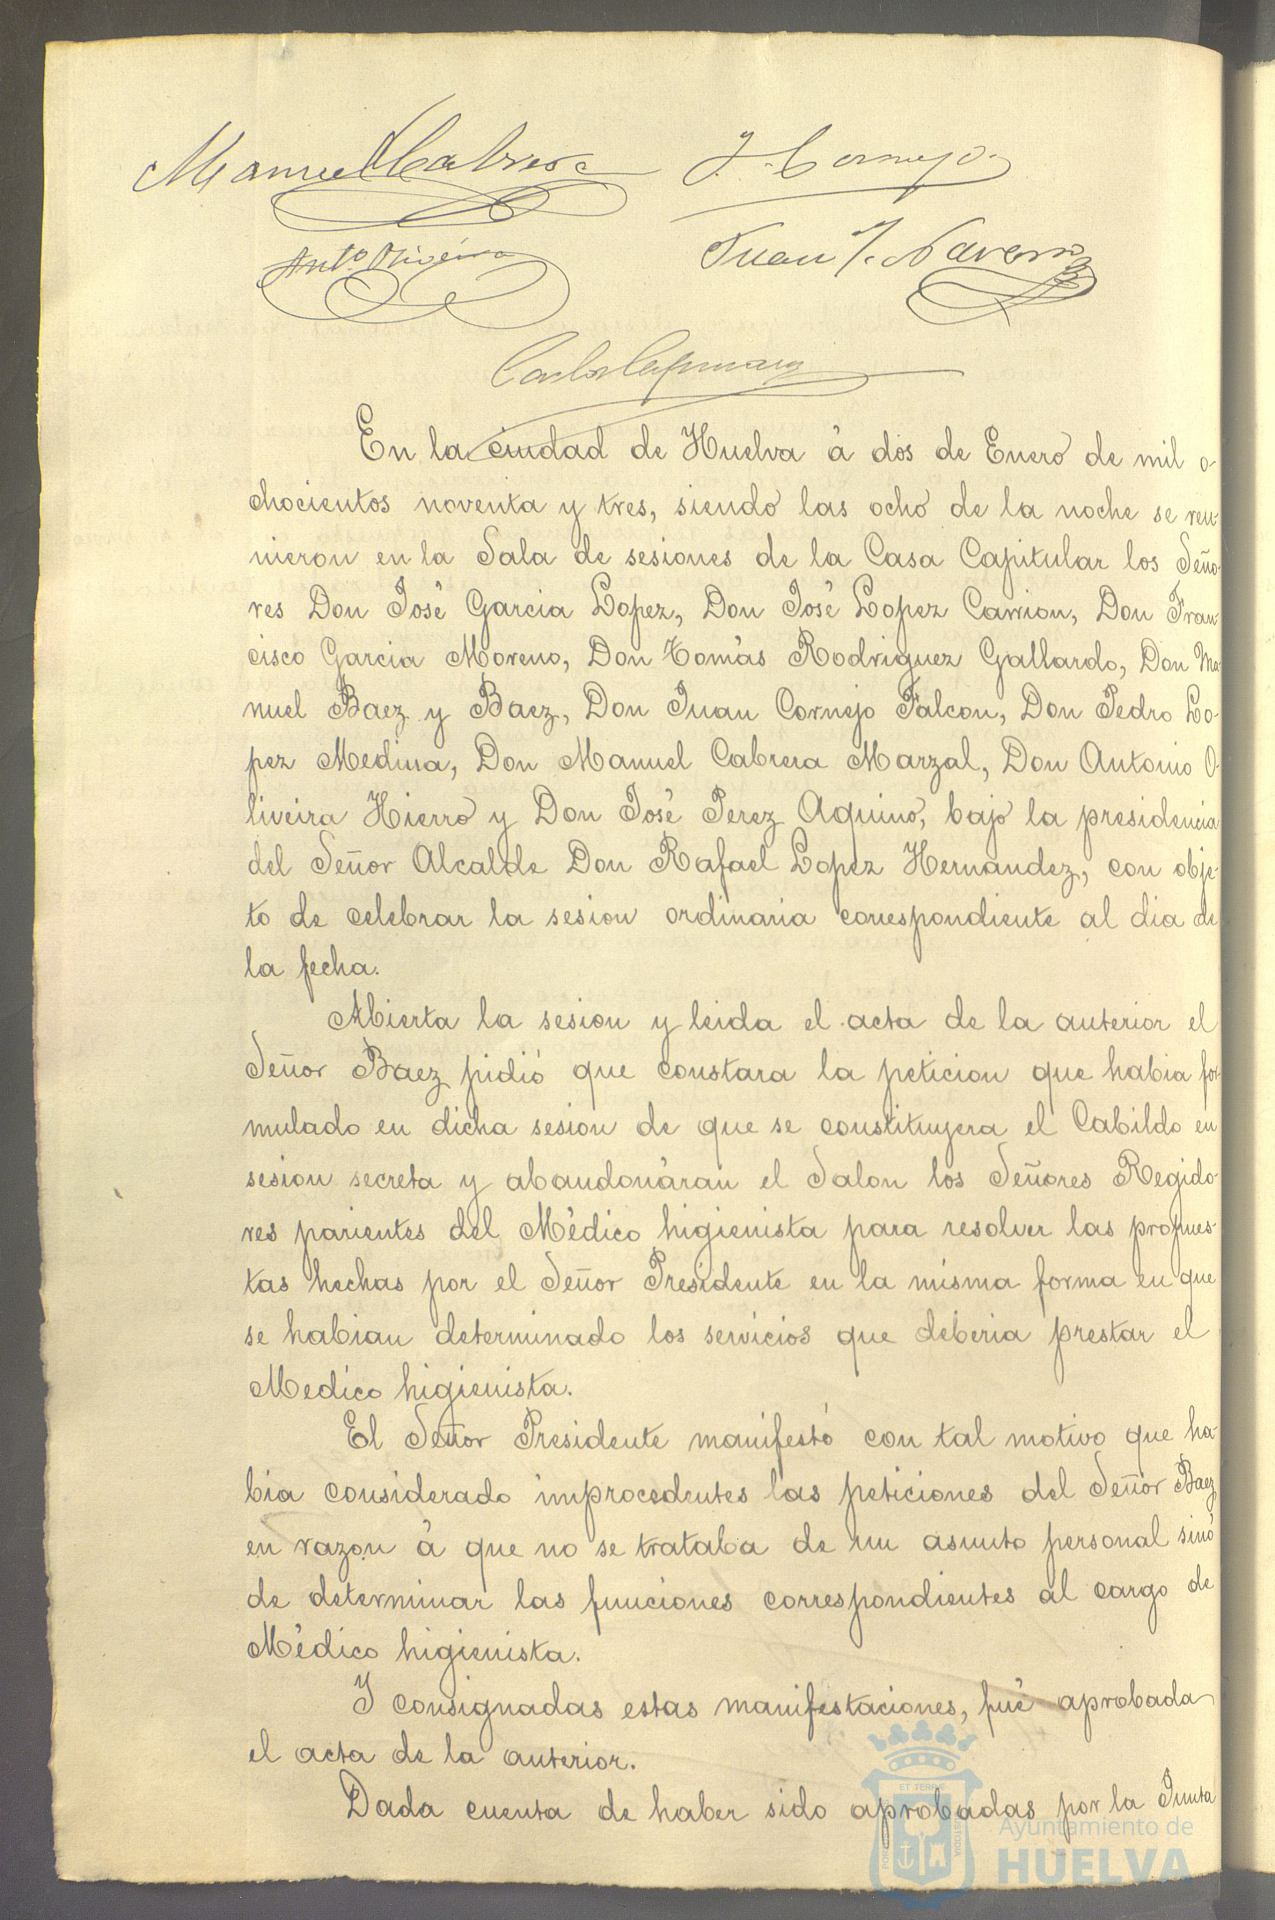 Manuel Cabrera
J. Cornejo
Ant.º Oliveira
Juan J. Navarro
Carlos
En la ciudad de Huelva á dos de Enero de mil o-
chocientos noventa y tres, siendo las ocho de la noche se reu-
nieron en la Sala de sesiones de la Casa Capitular los Seño-
res Don José Garcia Lopez, Don José Lopez Carrion, Don Fran-
cisco Garcia Moreno, Don Tomás Rodriguez Gallardo, Don Ma-
nuel Baez y Baez, Don Juan Cornejo Falcon, Don Pedro Lo-
pez Medina, Don Manuel Cabrera Marzal, Don Antonio O-
liveira Hierro y Don José Perez Aquino, bajo la presidencia
del Señor Alcalde Don Rafael Lopez Hernandez, con obje-
to de celebrar la sesion ordinaria correspondiente al dia de
la fecha.
Abierta la sesion y leida el acta de la anterior el
Señor Baez pidió que constara la peticion que habia for-
mulado en dicha sesion de que se constituyera el Cabildo en
sesion secreta y abandonáran el Salon los Señores Regido-
res parientes del Médico higienista para resolver las propues-
tas hechas por el Señor Presidente en la misma forma en que
se habian determinado los servicios que deberia prestar el
Medico higienista.
El Señor Presidente manifestó con tal motivo que ha-
bia considerado improcedentes las peticiones del Señor Baez
en razon á que no se trataba de un asunto personal sinó
de determinar las funciones correspondientes al cargo de
Médico higienista.
Y consignadas estas manifestaciones, fué aprobada
el acta de la anterior.
Dada cuenta de haber sido aprobadas por la Junta
Ayuntamiento de
HUELVA